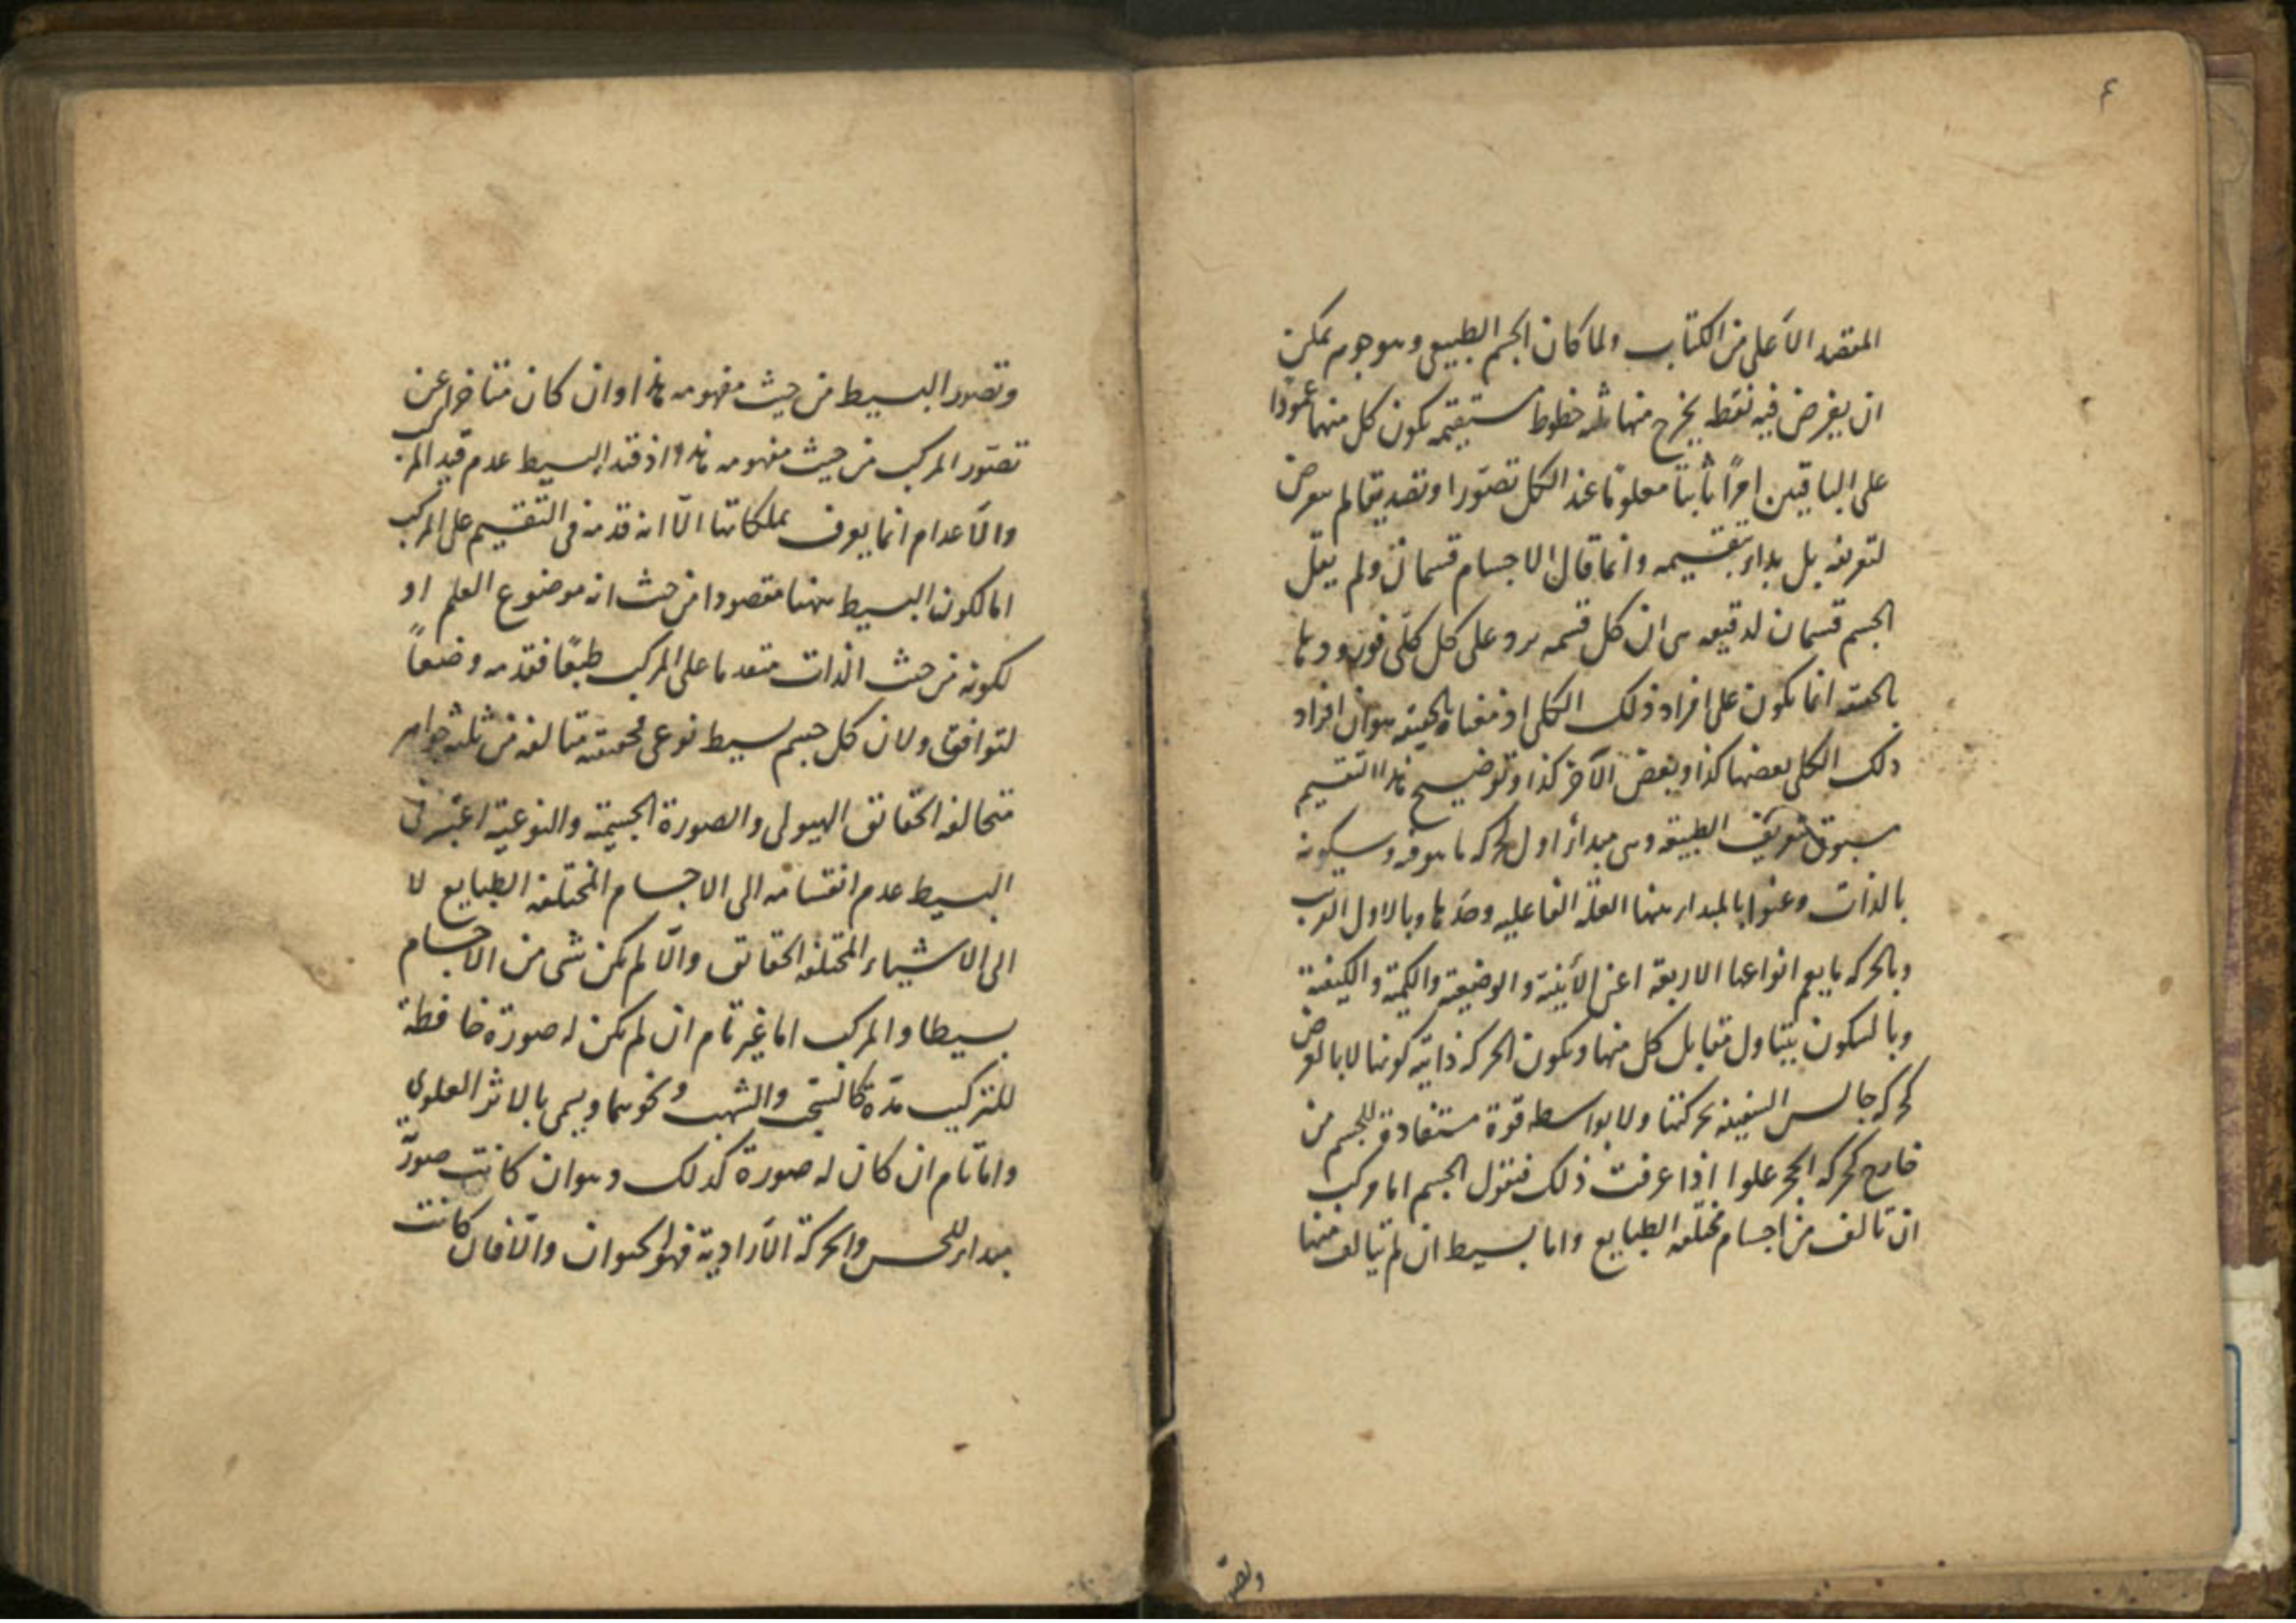 ٤
المقصد الأعلى من الكتاب ولما كان الجسم الطبيعى وهو جوهر يمكن
ان يفرض فيه نقطه يخرج منها ثلثه خطوط مستقيمه يكون كل منها عمودا
على الباقيين امرًا ثابتا معلومًا عند الكل تصورا وتصديقا لم يتعرض
لتعريفه بل بداء بتقسيمه وانما قال الاجسام قسمان ولم يقل
الجسم قسمان لدقيقه هى ان كل قسمه يرد على كل كلى فورودها
بالحقيقه انما يكون على افراد ذلك الكلى اذ معناه بالحقيقه هو ان افراد
ذلك الكلى بعضها كذا وبعض الآخر كذا وتوضيح هذا التقسيم
مسبوق بتعريف الطبيعه وهى مبداء اول لحركه ما هو فيه وسكونه
بالذات وعنوا بالمبداء ههنا العلة الفاعليه وحدها وبالاول القريب
وبالحركه ما يعم انواعها الاربعة اعنى الأينية والوضعية والكمية والكيفية
وبالسكون يتناول مقابل كل منها وبكون الحركه ذاتيه كونها لا بالعرض
كحركه جالس السفينه بحركتها ولا بواسطه قوة مستفادة للجسم من
خارج كحركه الحجر علوا اذا عرفت ذلك فنقول الجسم اما مركب
ان تالف من اجسام مختلفه الطبايع واما بسيط ان لم يتالف منها
وتصور
وتصور البسيط من حيث مفهومه هذا وان كان متاخرا عن
تصور المركب من حيث مفهومه هذا اذ قيد البسيط عدم قيد المركب
والأعدام انما يعرف بملكاتها الّا انه قدمه فى التقسيم على المركب
اما لكون البسيط ههنا مقصودا من حيث انه موضوع العلم او
لكونه من حيث الذات متقدما على المركب طبعًا فقدمه وضعاً
لتوافق ولان كل جسم بسيط نوعى فحقيقته متالفه من ثلثه جواهر
متخالفه الحقائق الهيولى والصورة الجسمية والنوعية اعتبر فى
البسيط عدم انقسامه الى الاجسام المختلفه الطبايع لا
الى الاشياء المختلفه الحقائق والّا لم يكن شى من الاجسام
بسيطا والمركب اما غير تام ان لم يكن له صورة حافظة
للتركيب مدّة كالسحب والشهب ونحوهما ويسمى بالاثر العلوى
وامّا تام ان كان له صورة كذلك وهو ان كانت صورته
مبداء للحس والحركة الأرادية فهو الحيوان والّا فان كانت